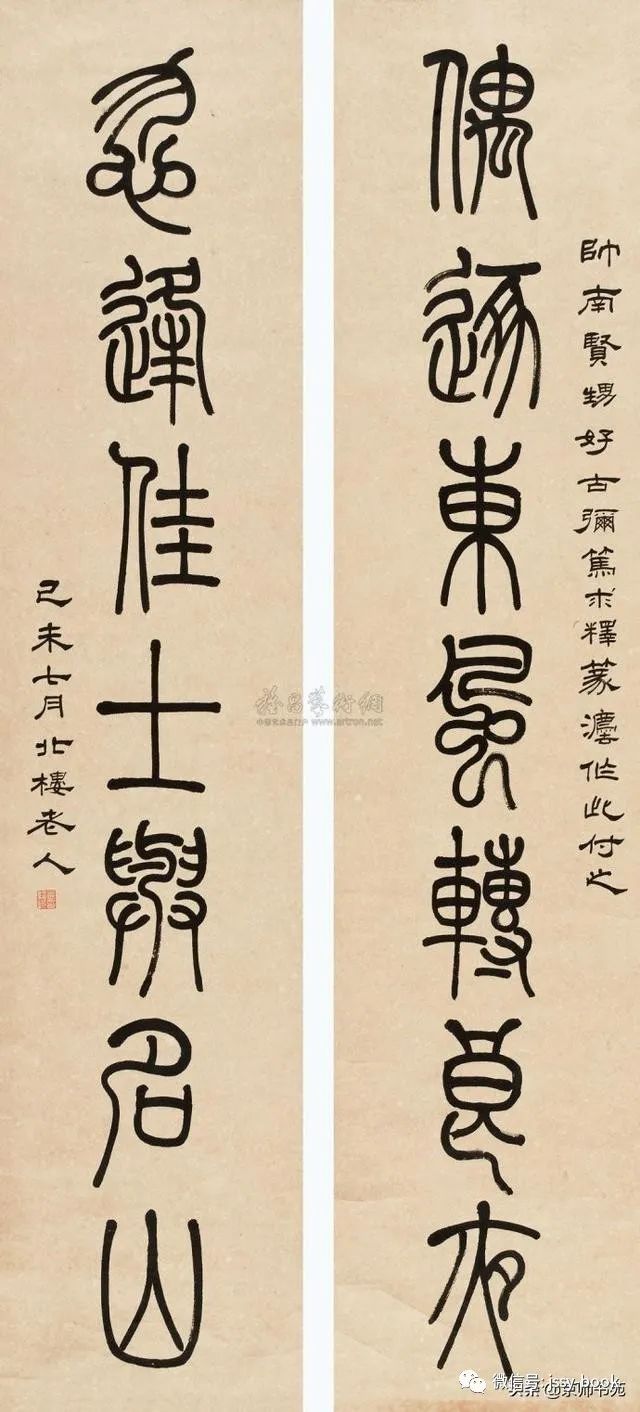 帥南賢甥好古彌篤求釋篆灋作此付之
偶逐東風轉良夜
忽逢佳士與名山
己未七月北樓老人
雅昌藝術網
www.artron.net
微信号: jssy_book
头条@京师书苑